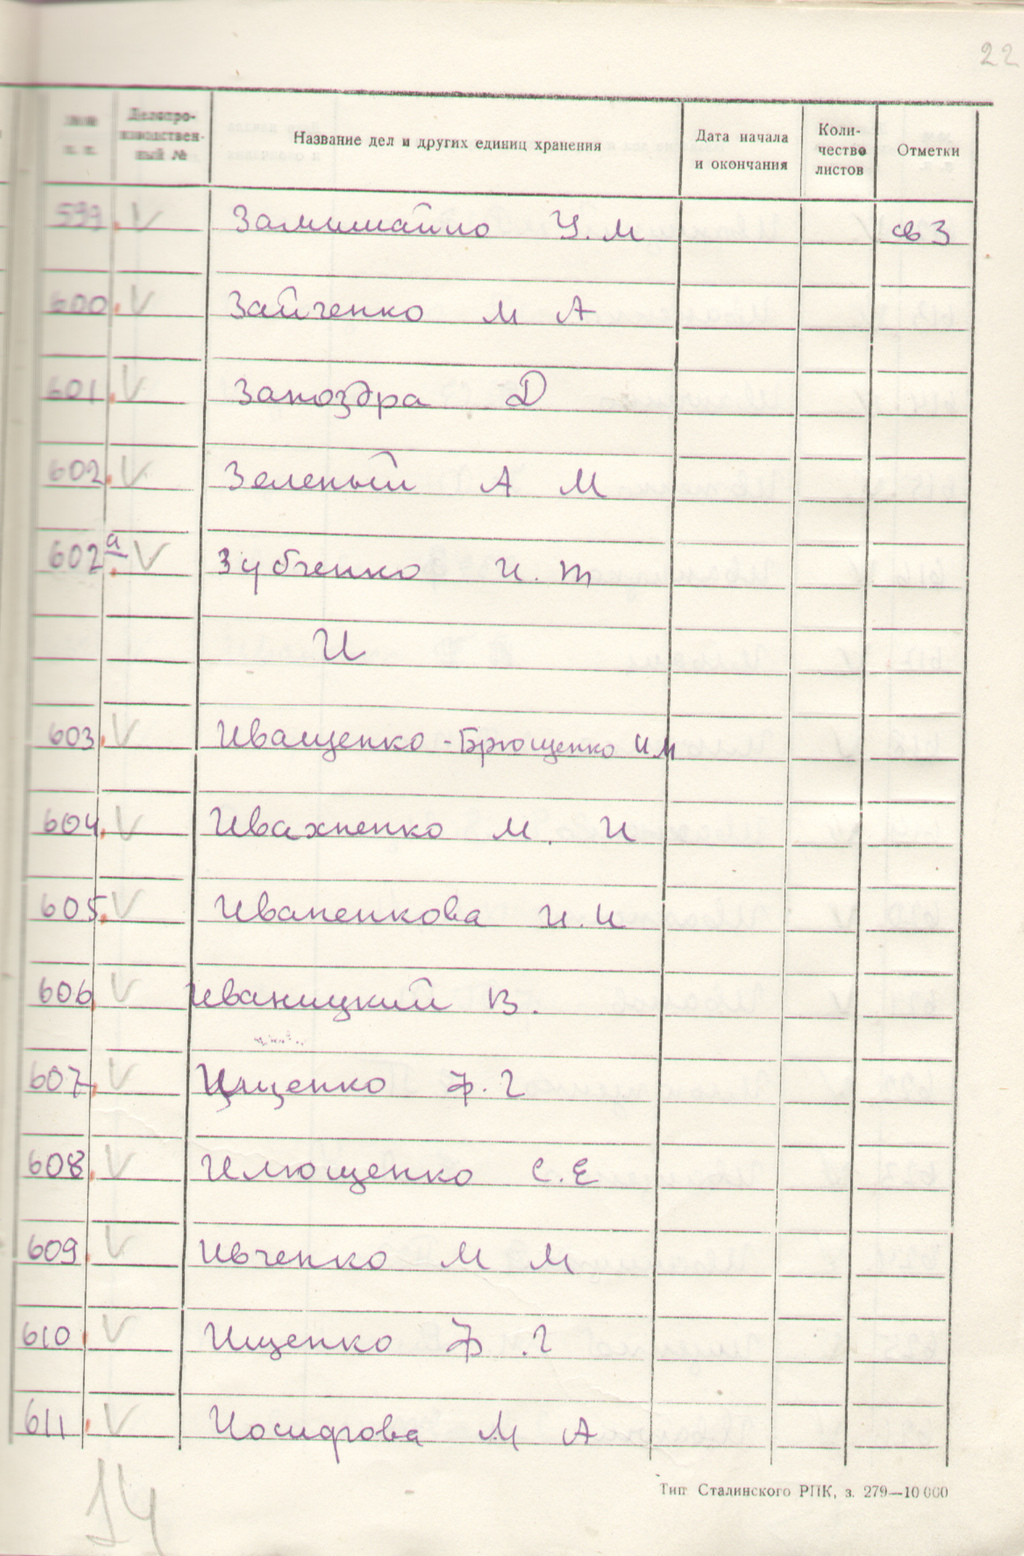 22
№№ п. п. Делопроизводственный № Название дел и других единиц хранения Дата начала и окончания Количество листов Отметки
599. V Замимайло У. М св 3
600. V Зайченко М А
601. V Запоздра Д
602. V Зеленый А М
602а. V Зубченко И. т
И
603. V Иващенко - Брющенко И М
604. V Ивахненко М. И
605. V Иваненкова И. И
606. V Иваницкий В.
607. V Ищенко Ф. Г
608. V Илющенко С. Е
609. V Ивченко М М
610. V Ищенко Ф. Г
611. V Иосифова М А
Тип Сталинского РПК, з. 279—10 000
14